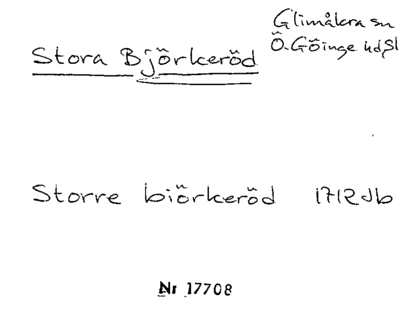 Glimåkra sn
Ö. Göinge hd, Sl
Stora Björkeröd
Storre biörkeröd 1712 Jb
Nr 17708